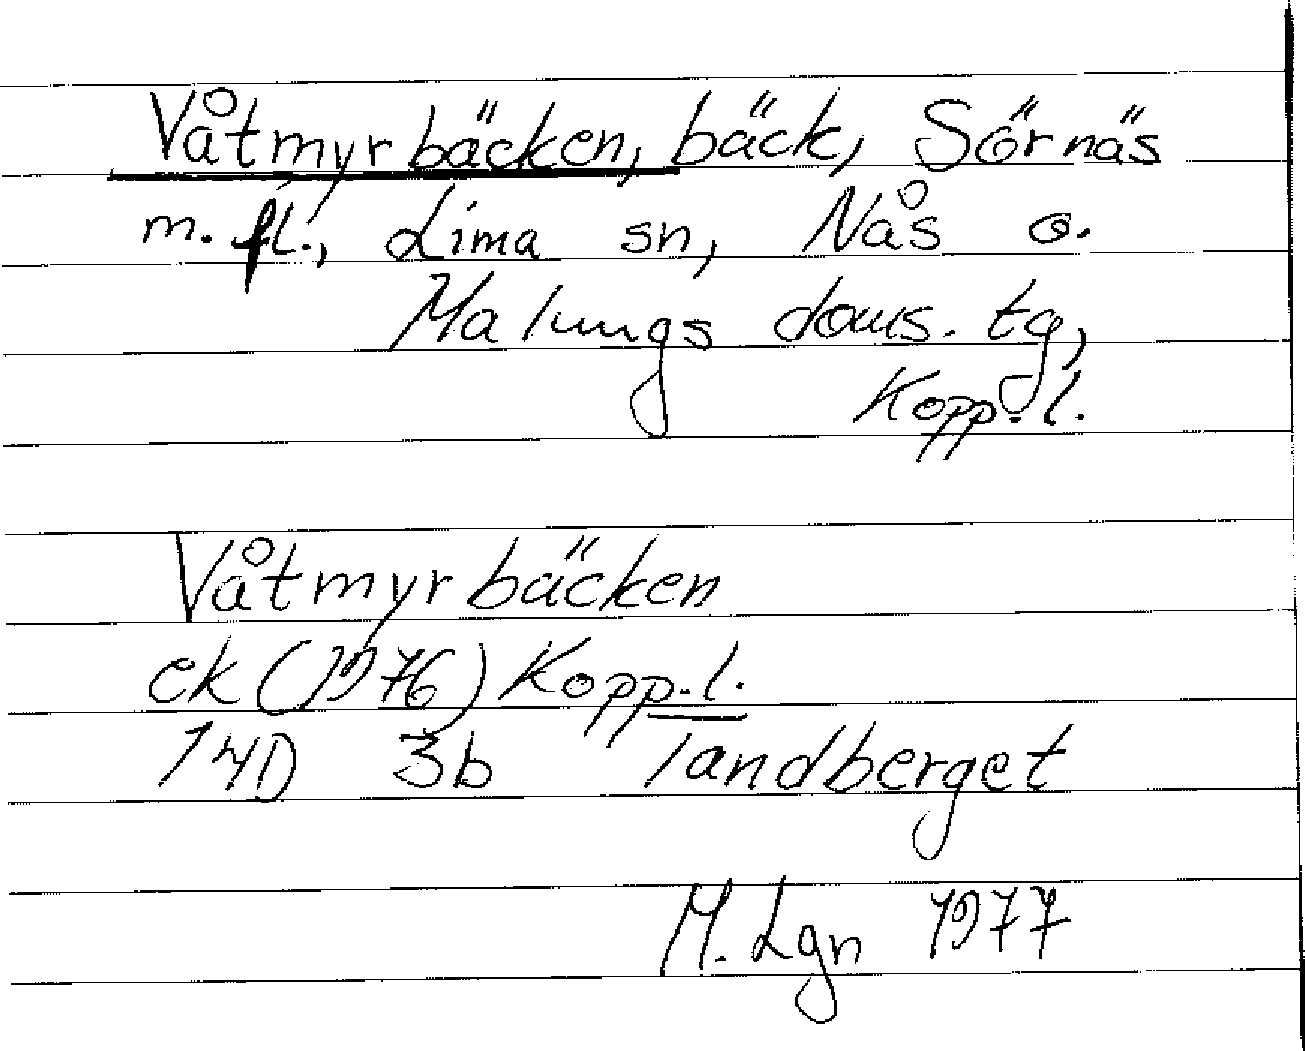 Våtmyrbäcken, bäck, Sörnäs
m. fl., Lima sn, Nås o.
Malungs doms. tg,
Kopp. l.
Våtmyrbäcken
ek (1976) Kopp. l.
14D 3b Tandberget
M. Lgn 1977